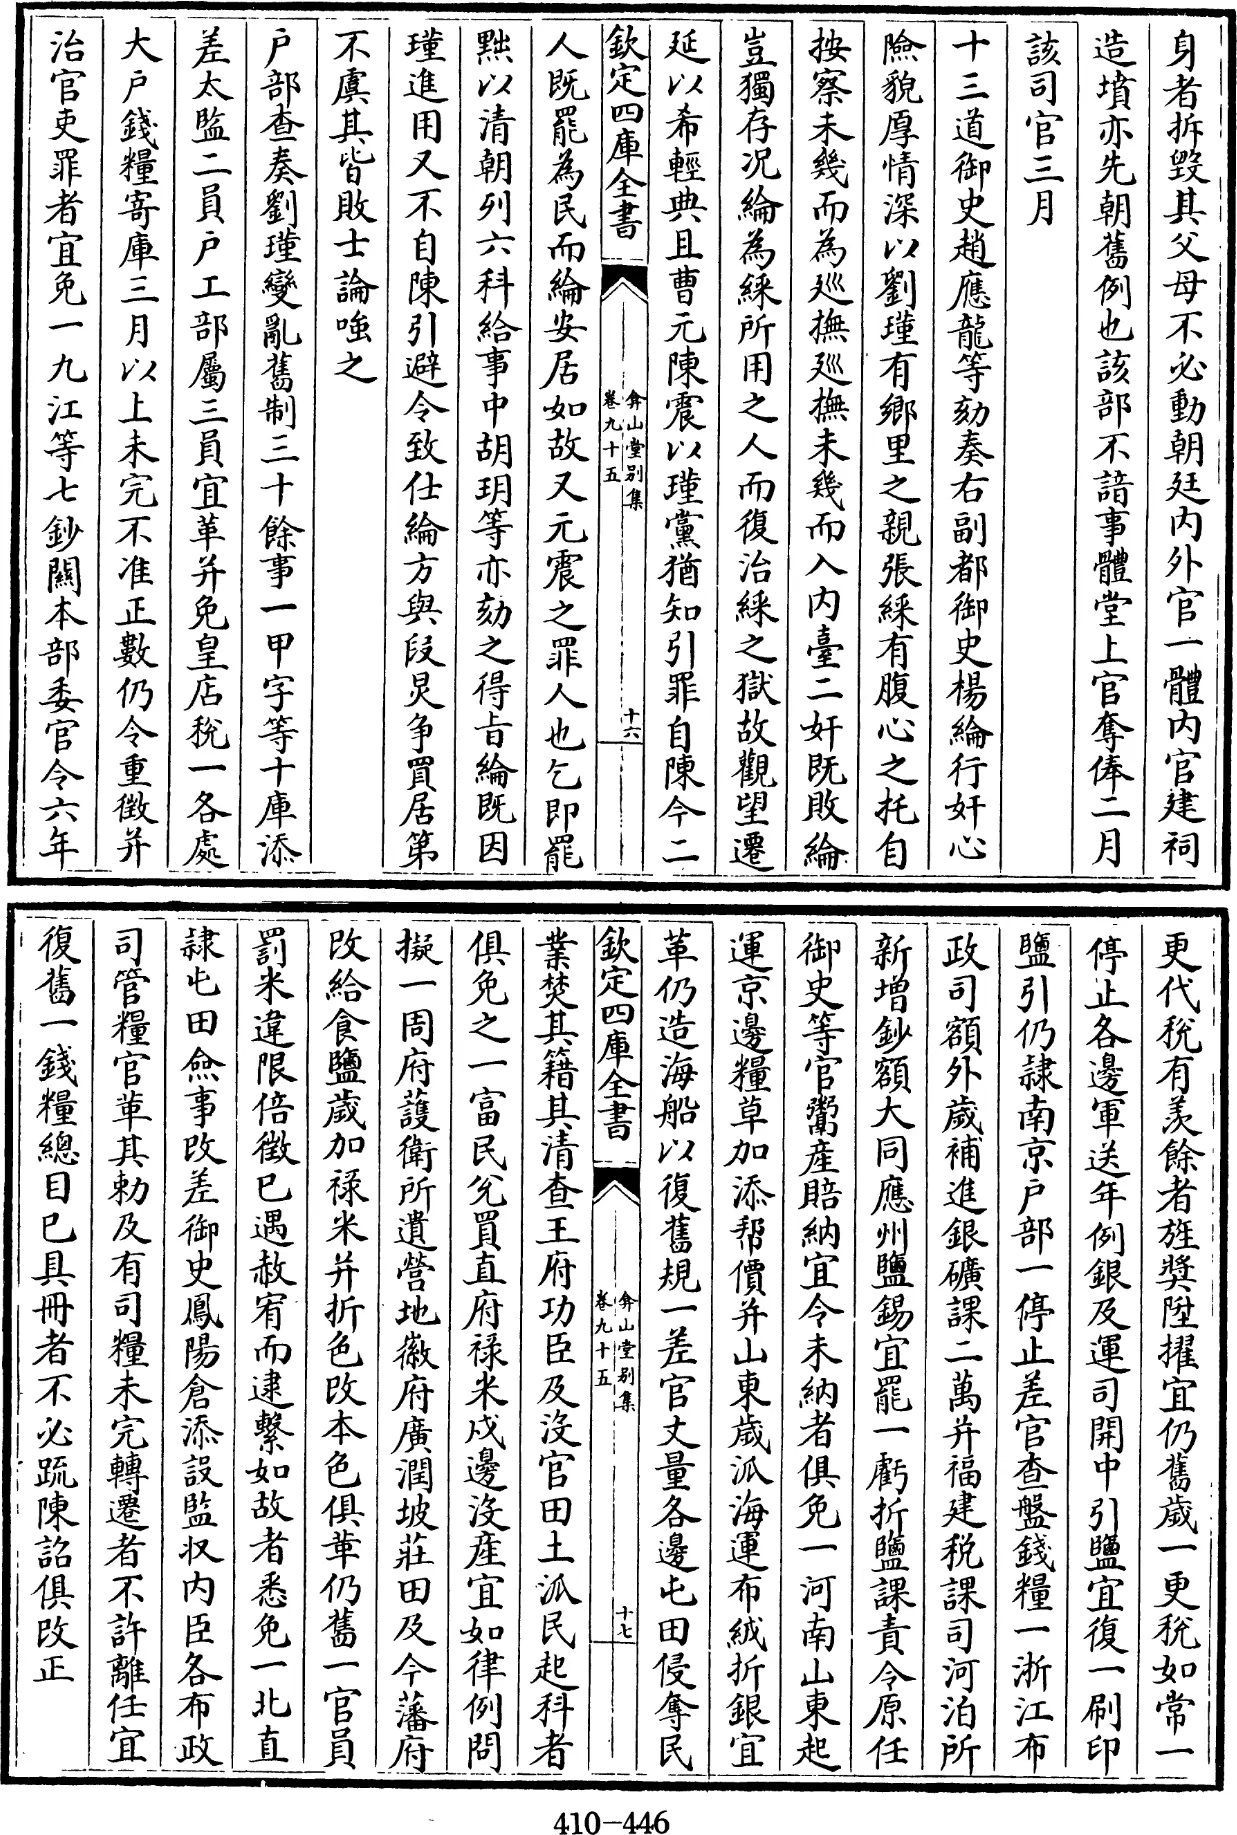 身者拆毀其父母不必動朝廷内外官一體内官建祠
造墳亦先朝舊例也該部不諳事體堂上官奪俸二月
該司官三月
十三道御史趙應龍等劾奏右副都御史楊綸行奸心
險貌厚情深以劉瑾有鄉里之親張綵有腹心之托自
按察未幾而為廵撫廵撫未幾而入内臺二奸既敗綸
豈獨存况綸為綵所用之人而復治綵之獄故觀望遷
延以希輕典且曹元陳震以瑾黨猶知引罪自陳今二
欽定四庫全書
弇山堂别集
卷九十五
十六
人既罷為民而綸安居如故又元震之罪人也乞即罷
黜以清朝列六科給事中胡玥等亦劾之得旨綸既因
瑾進用又不自陳引避令致仕綸方與段炅争買居第
不虞其皆敗士論嗤之
户部查奏劉瑾變亂舊制三十餘事一甲字等十庫添
差太監二員户工部屬三員宜革并免皇店稅一各處
大户錢糧寄庫三月以上未完不准正數仍令重徴并
治官吏罪者宜免一九江等七鈔關本部委官令六年
更代稅有羨餘者旌奬陞擢宜仍舊歲一更稅如常一
停止各邊軍送年例銀及運司開中引鹽宜復一刷印
鹽引仍隷南京户部一停止差官查盤錢糧一浙江布
政司額外歲補進銀礦課二萬并福建税課司河泊所
新增鈔額大同應州鹽錫宜罷一虧折鹽課責令原任
御史等官鬻産賠納宜令未納者俱免一河南山東起
運京邊糧草加添帮價并山東歲派海運布絨折銀宜
革仍造海船以復舊規一差官丈量各邊屯田侵奪民
欽定四庫全書
弇山堂别集
卷九十五
十七
業焚其籍其清查王府功臣及沒官田土派民起科者
俱免之一富民兊買直府祿米戍邊沒産宜如律例問
擬一周府護衛所遺營地徽府廣潤坡莊田及今藩府
改給食鹽歲加祿米并折色改本色俱革仍舊一官員
罰米違限倍徴已遇赦宥而逮繫如故者悉免一北直
隷屯田僉事改差御史鳳陽倉添設監收内臣各布政
司管糧官革其勅及有司糧未完轉遷者不許離任宜
復舊一錢糧總目已具冊者不必疏陳詔俱改正
410-446